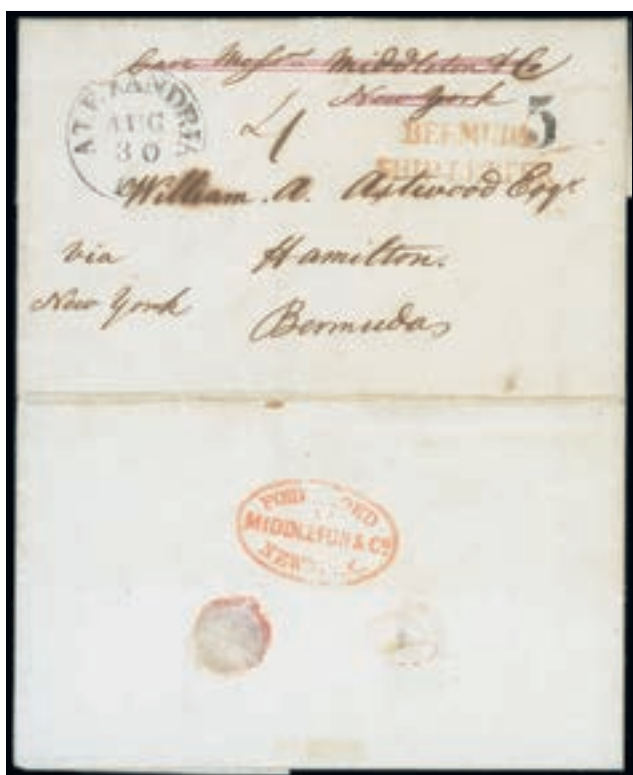 Care Messrs Middleton & Co
New York
ALEXANDRIA
AUG
30
4
5
BERMUDA
SHIP LETTER
William. A. Astwood Esqr
via Hamilton.
New York
Bermudas
FORWARDED
MIDDLETON & Co
NEW